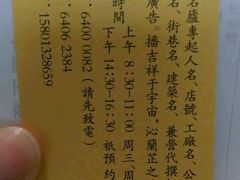 名廬專起人名、店號、工廠名、公
名、街巷名、建築名、兼營代撰
廣告。播吉祥于宇宙，沁蘭芷之
時間
上午 8:30—11:00 周三 周
下午 14:30—16:30 祇預約
：6400 0082（請先致電）
：6406 2384
：15801328659